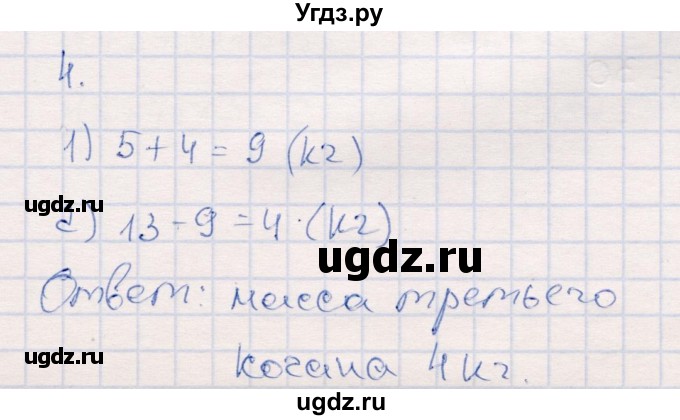 Угдз.ру
4.
1) 5+4=9 (кг)
ugdz.ru ugdz.ru
2) 13-9=4 (кг)
ugdz.ru
Ответ: масса третьего
ugdz.ru
кочана 4 кг.
ugdz.ru